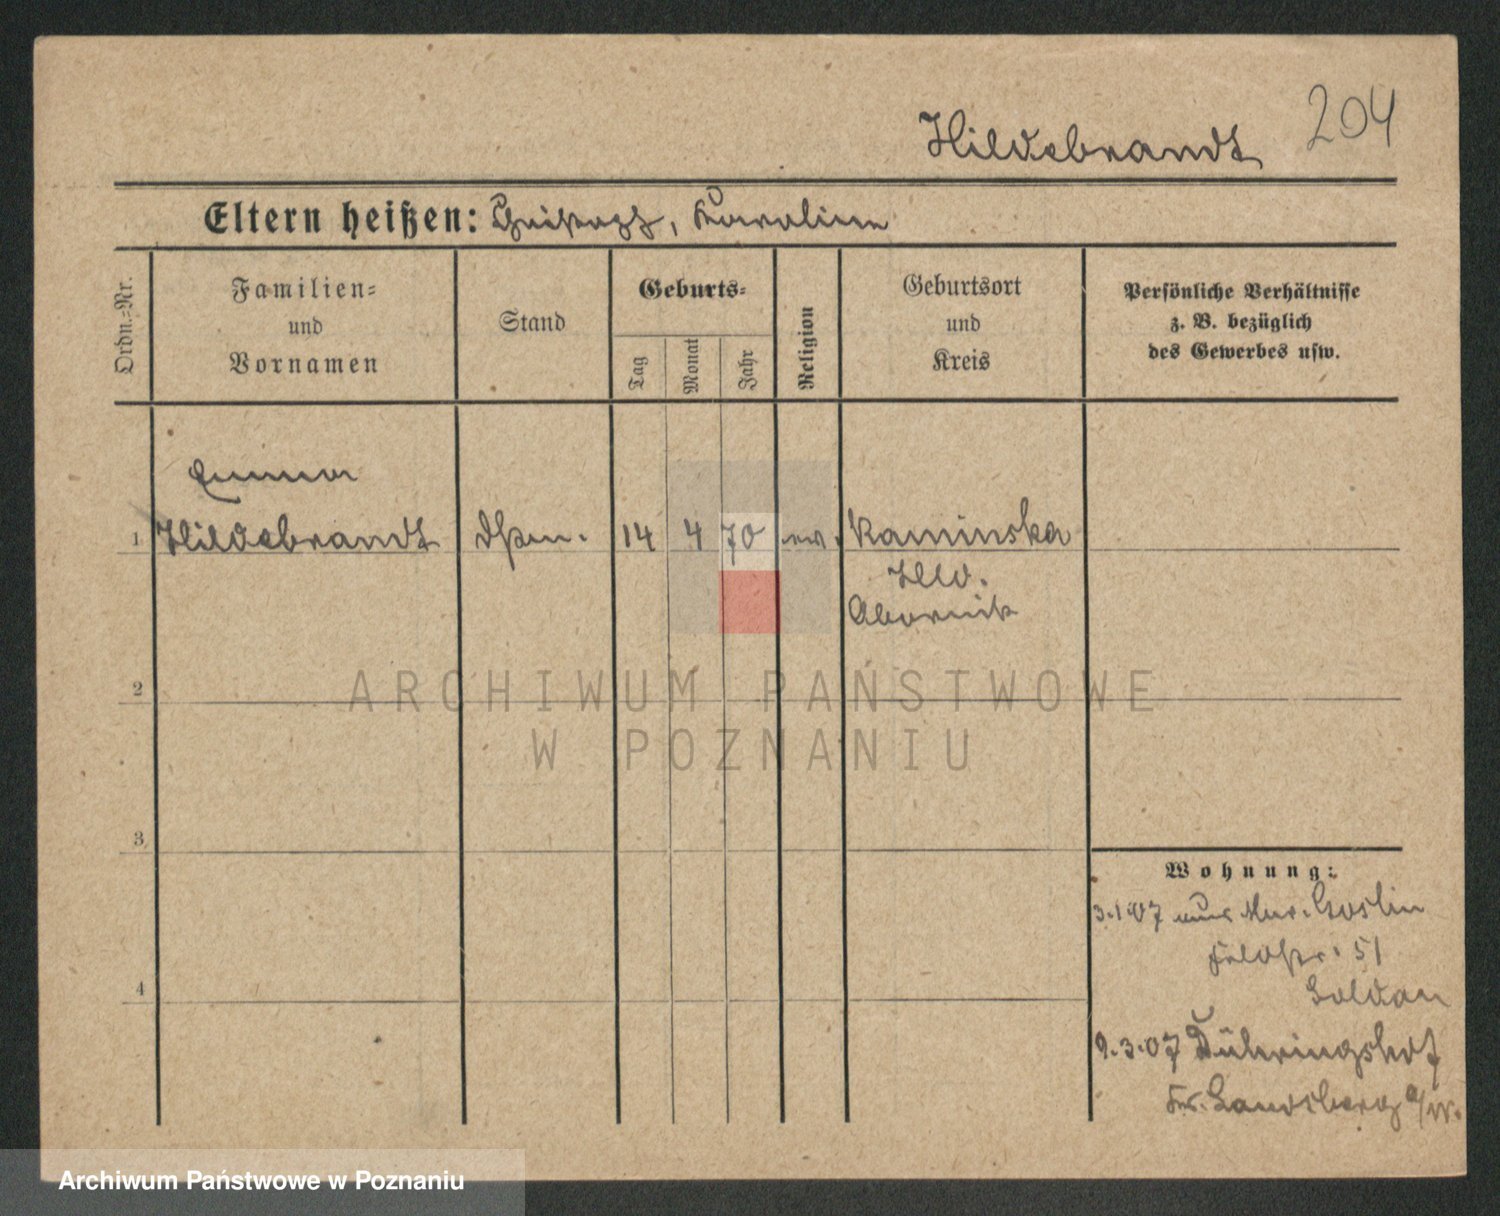 204
Hildebrandt
Eltern heißen: Karoline
Ordn.-Nr.
Familien-
und
Vornamen
Stand
Geburts-
Tag
Monat
Jahr
Religion
Geburtsort
und
Kreis
Persönliche Verhältnisse
z. B. bezüglich
des Gewerbes usw.
Emma
1 Hildebrandt 14 4 70 ev. Kaminska
Hld.
Obornik
2
3
4
ARCHIWUM PAŃSTWOWE
W POZNANIU
Wohnung:
3.1.07 aus Mur. Goslin
Feldstr. 51
Soldan
9.3.07 Dühringshof
Kr. Landsberg a/W.
Archiwum Państwowe w Poznaniu